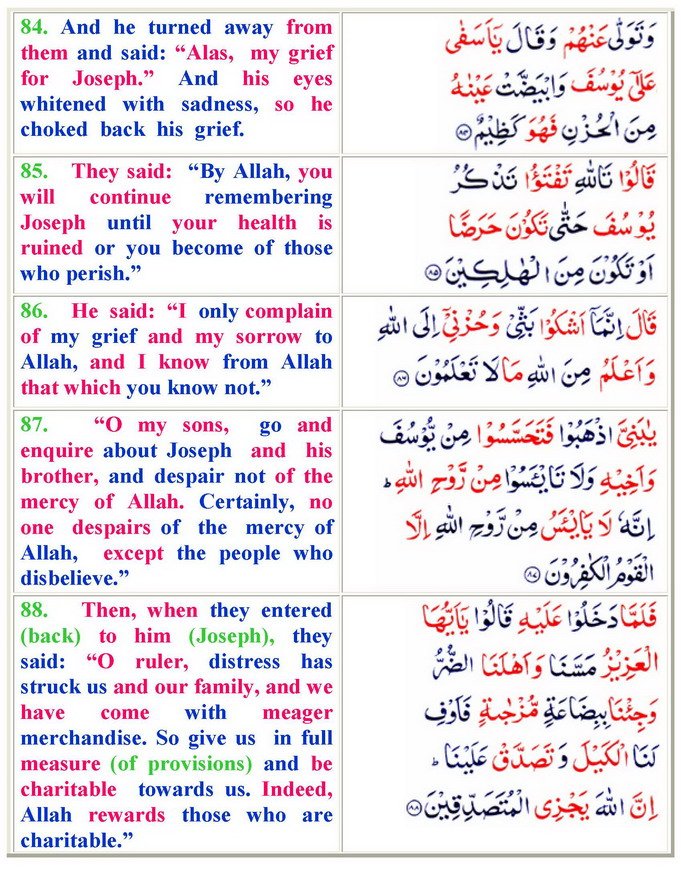 84. And he turned away from
them and said: “Alas, my grief
for Joseph.” And his eyes
whitened with sadness, so he
choked back his grief.
وَتَوَلّٰى عَنْهُمْ وَقَالَ يٰٓاَسَفٰى
عَلٰى يُوْسُفَ وَابْيَضَّتْ عَيْنٰهُ
مِنَ الْحُزْنِ فَهُوَ كَظِيْمٌ ۝۸۴
85. They said: “By Allah, you
will continue remembering
Joseph until your health is
ruined or you become of those
who perish.”
قَالُوْا تَاللّٰهِ تَفْتَؤُا تَذْكُرُ
يُوْسُفَ حَتّٰى تَكُوْنَ حَرَضًا
اَوْ تَكُوْنَ مِنَ الْهٰلِكِيْنَ ۝۸۵
86. He said: “I only complain
of my grief and my sorrow to
Allah, and I know from Allah
that which you know not.”
قَالَ اِنَّمَآ اَشْكُوْا بَثِّىْ وَحُزْنِىْٓ اِلَى اللّٰهِ
وَاَعْلَمُ مِنَ اللّٰهِ مَا لَا تَعْلَمُوْنَ ۝۸۶
87. “O my sons, go and
enquire about Joseph and his
brother, and despair not of the
mercy of Allah. Certainly, no
one despairs of the mercy of
Allah, except the people who
disbelieve.”
يٰبَنِىَّ اذْهَبُوْا فَتَحَسَّسُوْا مِنْ يُّوْسُفَ
وَاَخِيْهِ وَلَا تَايْـَٔسُوْا مِنْ رَّوْحِ اللّٰهِ ؕ
اِنَّهٗ لَا يَايْـَٔسُ مِنْ رَّوْحِ اللّٰهِ اِلَّا
الْقَوْمُ الْكٰفِرُوْنَ ۝۸۷
88. Then, when they entered
(back) to him (Joseph), they
said: “O ruler, distress has
struck us and our family, and we
have come with meager
merchandise. So give us in full
measure (of provisions) and be
charitable towards us. Indeed,
Allah rewards those who are
charitable.”
فَلَمَّا دَخَلُوْا عَلَيْهِ قَالُوْا يٰٓاَيُّهَا
الْعَزِيْزُ مَسَّنَا وَاَهْلَنَا الضُّرُّ
وَجِئْنَا بِبِضَاعَةٍ مُّزْجٰىةٍ فَاَوْفِ
لَنَا الْكَيْلَ وَتَصَدَّقْ عَلَيْنَا ؕ
اِنَّ اللّٰهَ يَجْزِى الْمُتَصَدِّقِيْنَ ۝۸۸